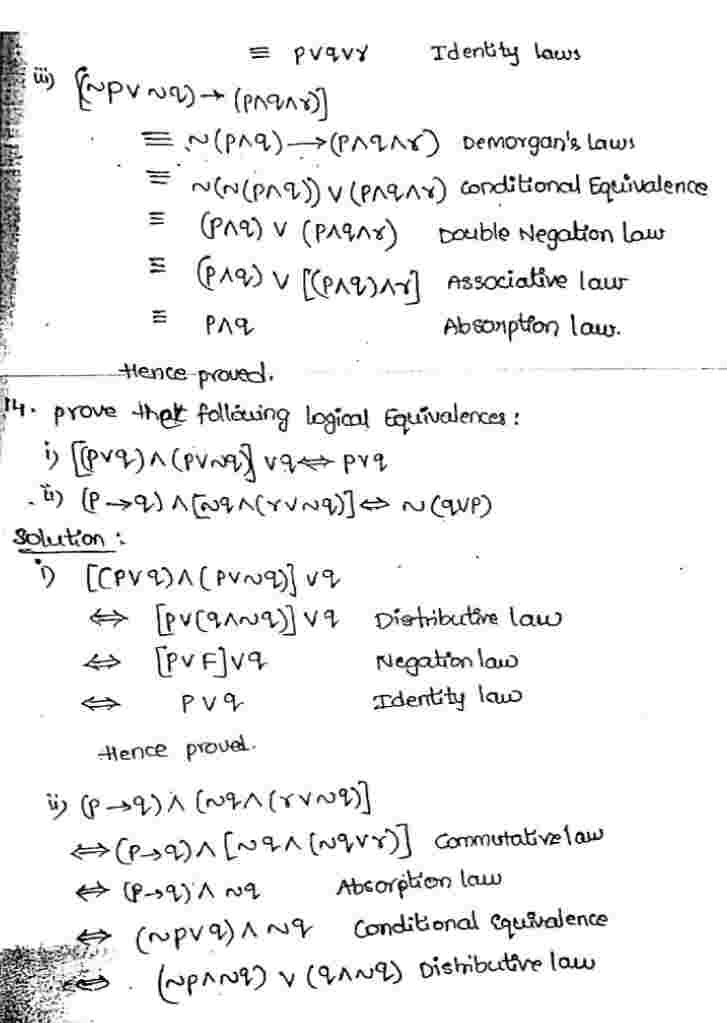 ≡ p∨q∨r Identity laws
iii) [(~p∨~q)→(p∧q∧r)]
≡ ~(p∧q)→(p∧q∧r) Demorgan's Laws
≡ ~(~(p∧q))∨(p∧q∧r) Conditional Equivalence
≡ (p∧q)∨(p∧q∧r) Double Negation law
≡ (p∧q)∨[(p∧q)∧r] Associative law
≡ p∧q Absorption law.
Hence proved.
14. prove that following logical Equivalences:
i) [(p∨q)∧(p∨~q)]∨q⇔p∨q
ii) (p→q)∧[~q∧(r∨~q)]⇔~(q∨p)
Solution:
i) [(p∨q)∧(p∨~q)]∨q
⇔ [p∨(q∧~q)]∨q Distributive law
⇔ [p∨F]∨q Negation law
⇔ p∨q Identity law
Hence proved.
ii) (p→q)∧(~q∧(r∨~q)]
⇔(p→q)∧[~q∧(~q∨r)] Commutative law
⇔ (p→q)∧~q Absorption law
⇔ (~p∨q)∧~q Conditional Equivalence
⇔ (~p∧~q)∨(q∧~q) Distributive law